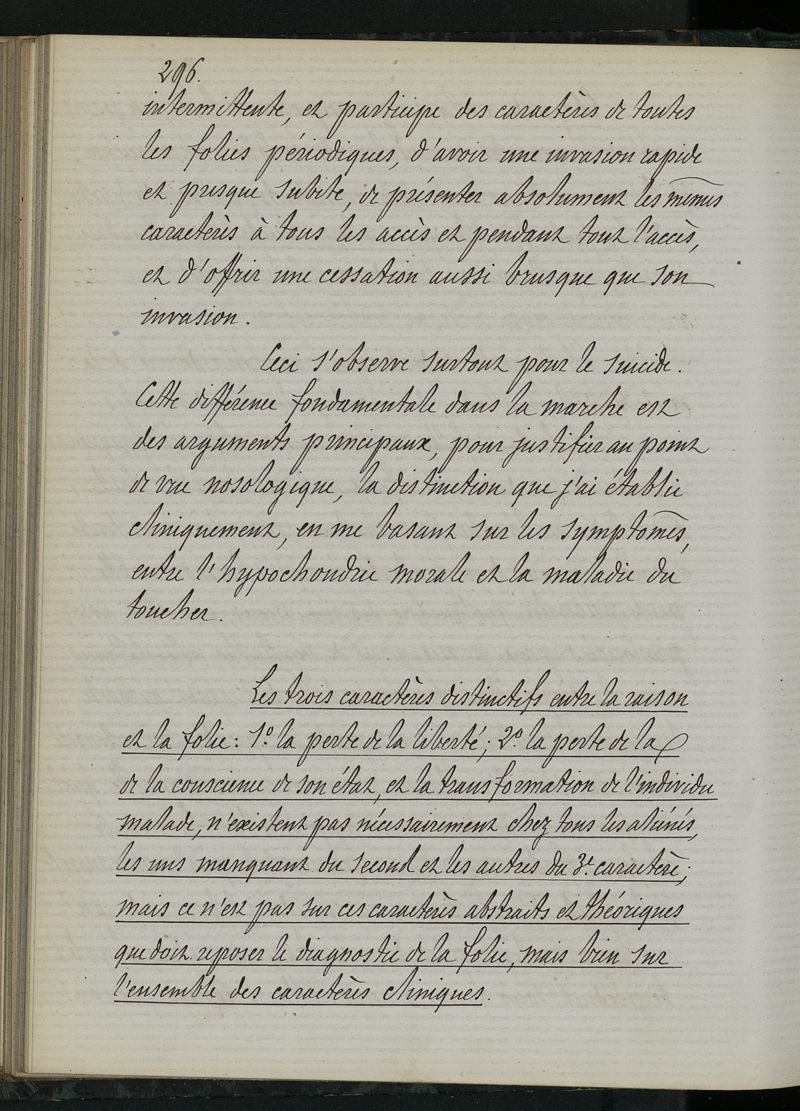 296.
intermittente, et participe des caractères de toutes
les folies périodiques, d'avoir une invasion rapide
et presque subite, de présenter absolument les mêmes
caractères à tous les accès et pendant tout l'accès,
et d'offrir une cessation aussi brusque que son
invasion.
Ceci s'observe surtout pour le suicide.
Cette différence fondamentale dans la marche est
des arguments principaux, pour justifier au point
de vue nosologique, la distinction que j'ai établie
cliniquement, en me basant sur les symptômes,
entre l'hypochondrie morale et la maladie du
toucher.
Les trois caractères distinctifs entre la raison
et la folie: 1º. la perte de la liberté; 2º. la perte de la
de la conscience de son état, et la transformation de l'individu
malade, n'existent pas nécessairement chez tous les aliénés,
les uns manquant du second et les autres du 3e. caractère;
mais ce n'est pas sur ces caractères abstraits et théoriques
que doit reposer le diagnostic de la folie, mais bien sur
l'ensemble des caractères cliniques.